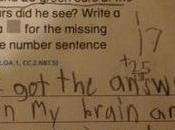 ars did he see? Write a
a for the missing
e number sentence
17
+25
got the answ
n my brain an